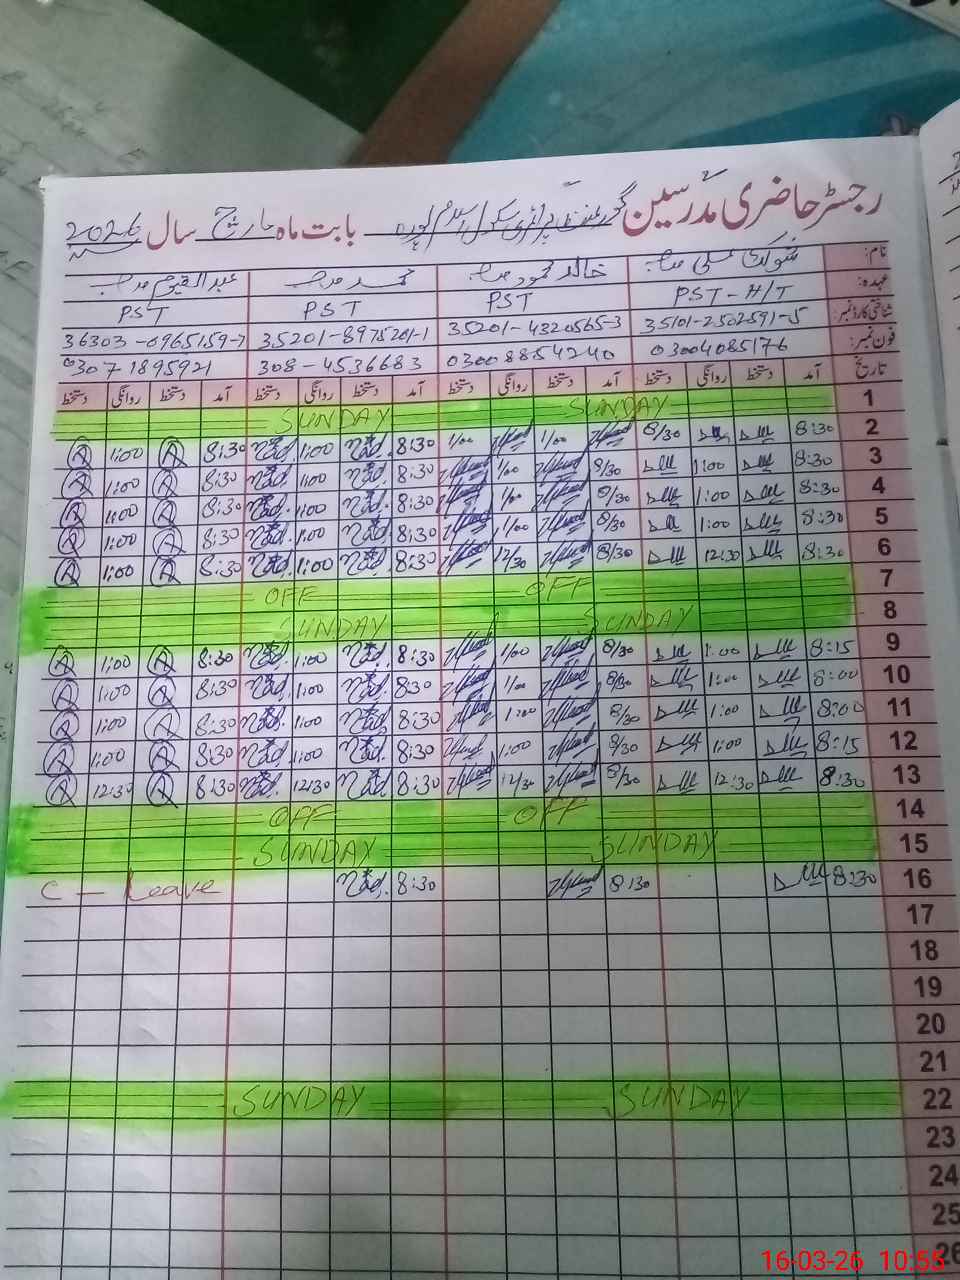 رجسٹر حاضری مدرسین گورنمنٹ پرائمری سکول اسلام پورہ بابت ماہ مارچ سال 2026
نام: شوکت علی صاحب خالد محمود صاحب محمد صاحب عبدالقیوم صاحب
عہدہ: PST-H/T PST PST PST
شناختی کارڈ نمبر: 35101-2502591-5 35201-4320565-3 35201-8975201-1 36303-0965159-7
فون نمبر: 03004085176 03008854240 308-4536683 03071895921
تاریخ آمد دستخط روانگی دستخط آمد دستخط روانگی دستخط آمد دستخط روانگی دستخط آمد دستخط روانگی دستخط
1 SUNDAY SUNDAY
2 8:30 8/30 1/00 1/00 8:30 1:00 8:30 1:00
3 8:30 1:00 8/30 1/00 8:30 1:00 8:30 1:00
4 8:30 1:00 8/30 1/00 8:30 1:00 8:30 1:00
5 8:30 1:00 8/30 1/00 8:30 1:00 8:30 1:00
6 8:30 12:30 8/30 12/30 8:30 1:00 8:30 1:00
7 OFF OFF
8 SUNDAY SUNDAY
9 8:15 1:00 8/30 1/00 8:30 1:00 8:30 1:00
10 8:00 1:00 8/30 1/00 8:30 1:00 8:30 1:00
11 8:00 1:00 8/30 1:00 8:30 1:00 8:30 1:00
12 8:15 1:00 8/30 1:00 8:30 1:00 8:30 1:00
13 8:30 12:30 8/30 12/30 8:30 12/30 8:30 12:30
14 OFF OFF
15 SUNDAY SUNDAY
16 8:30 8:30 8:30 C - Leave
17
18
19
20
21
22 SUNDAY SUNDAY
23
24
25
26
16-03-26 10:55